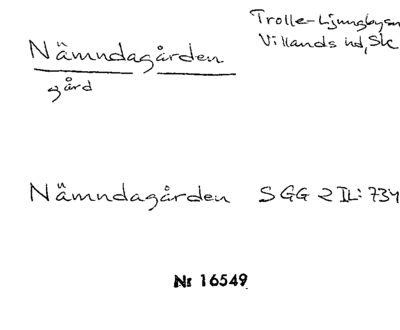 Nämndagården
Trolle-Ljungbysn
Villands hd, Sk
gård
Nämndagården SGG 2 II: 734
Nr 16549